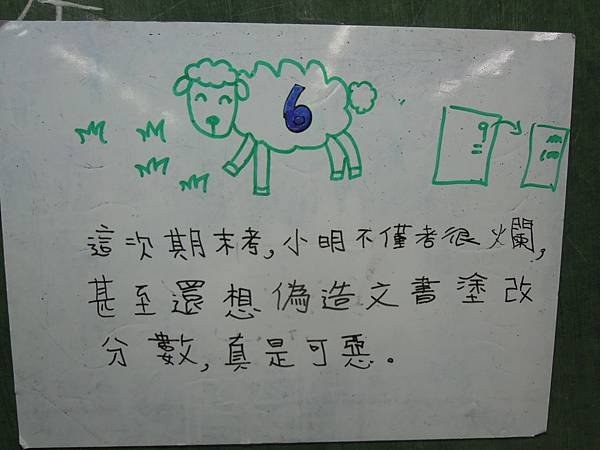 6
9
這次期末考,小明不僅者很爛,
甚至還想偽造文書塗改
分數,真是可惡。